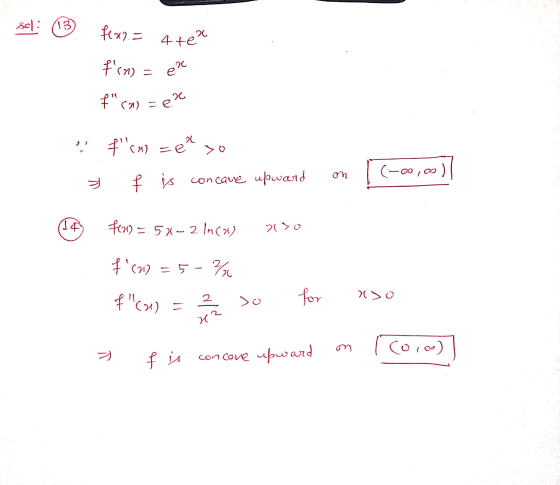 sol: (13) f(x) = 4+e^x
f'(x) = e^x
f"(x) = e^x
∵ f"(x) = e^x >0
⇒ f is concave upward on (-∞,∞)
(14) f(x) = 5x-2 ln(x) x>0
f'(x) = 5 - 2/x
f"(x) = 2/x^2 >0 for x>0
⇒ f is concave upward on (0,∞)